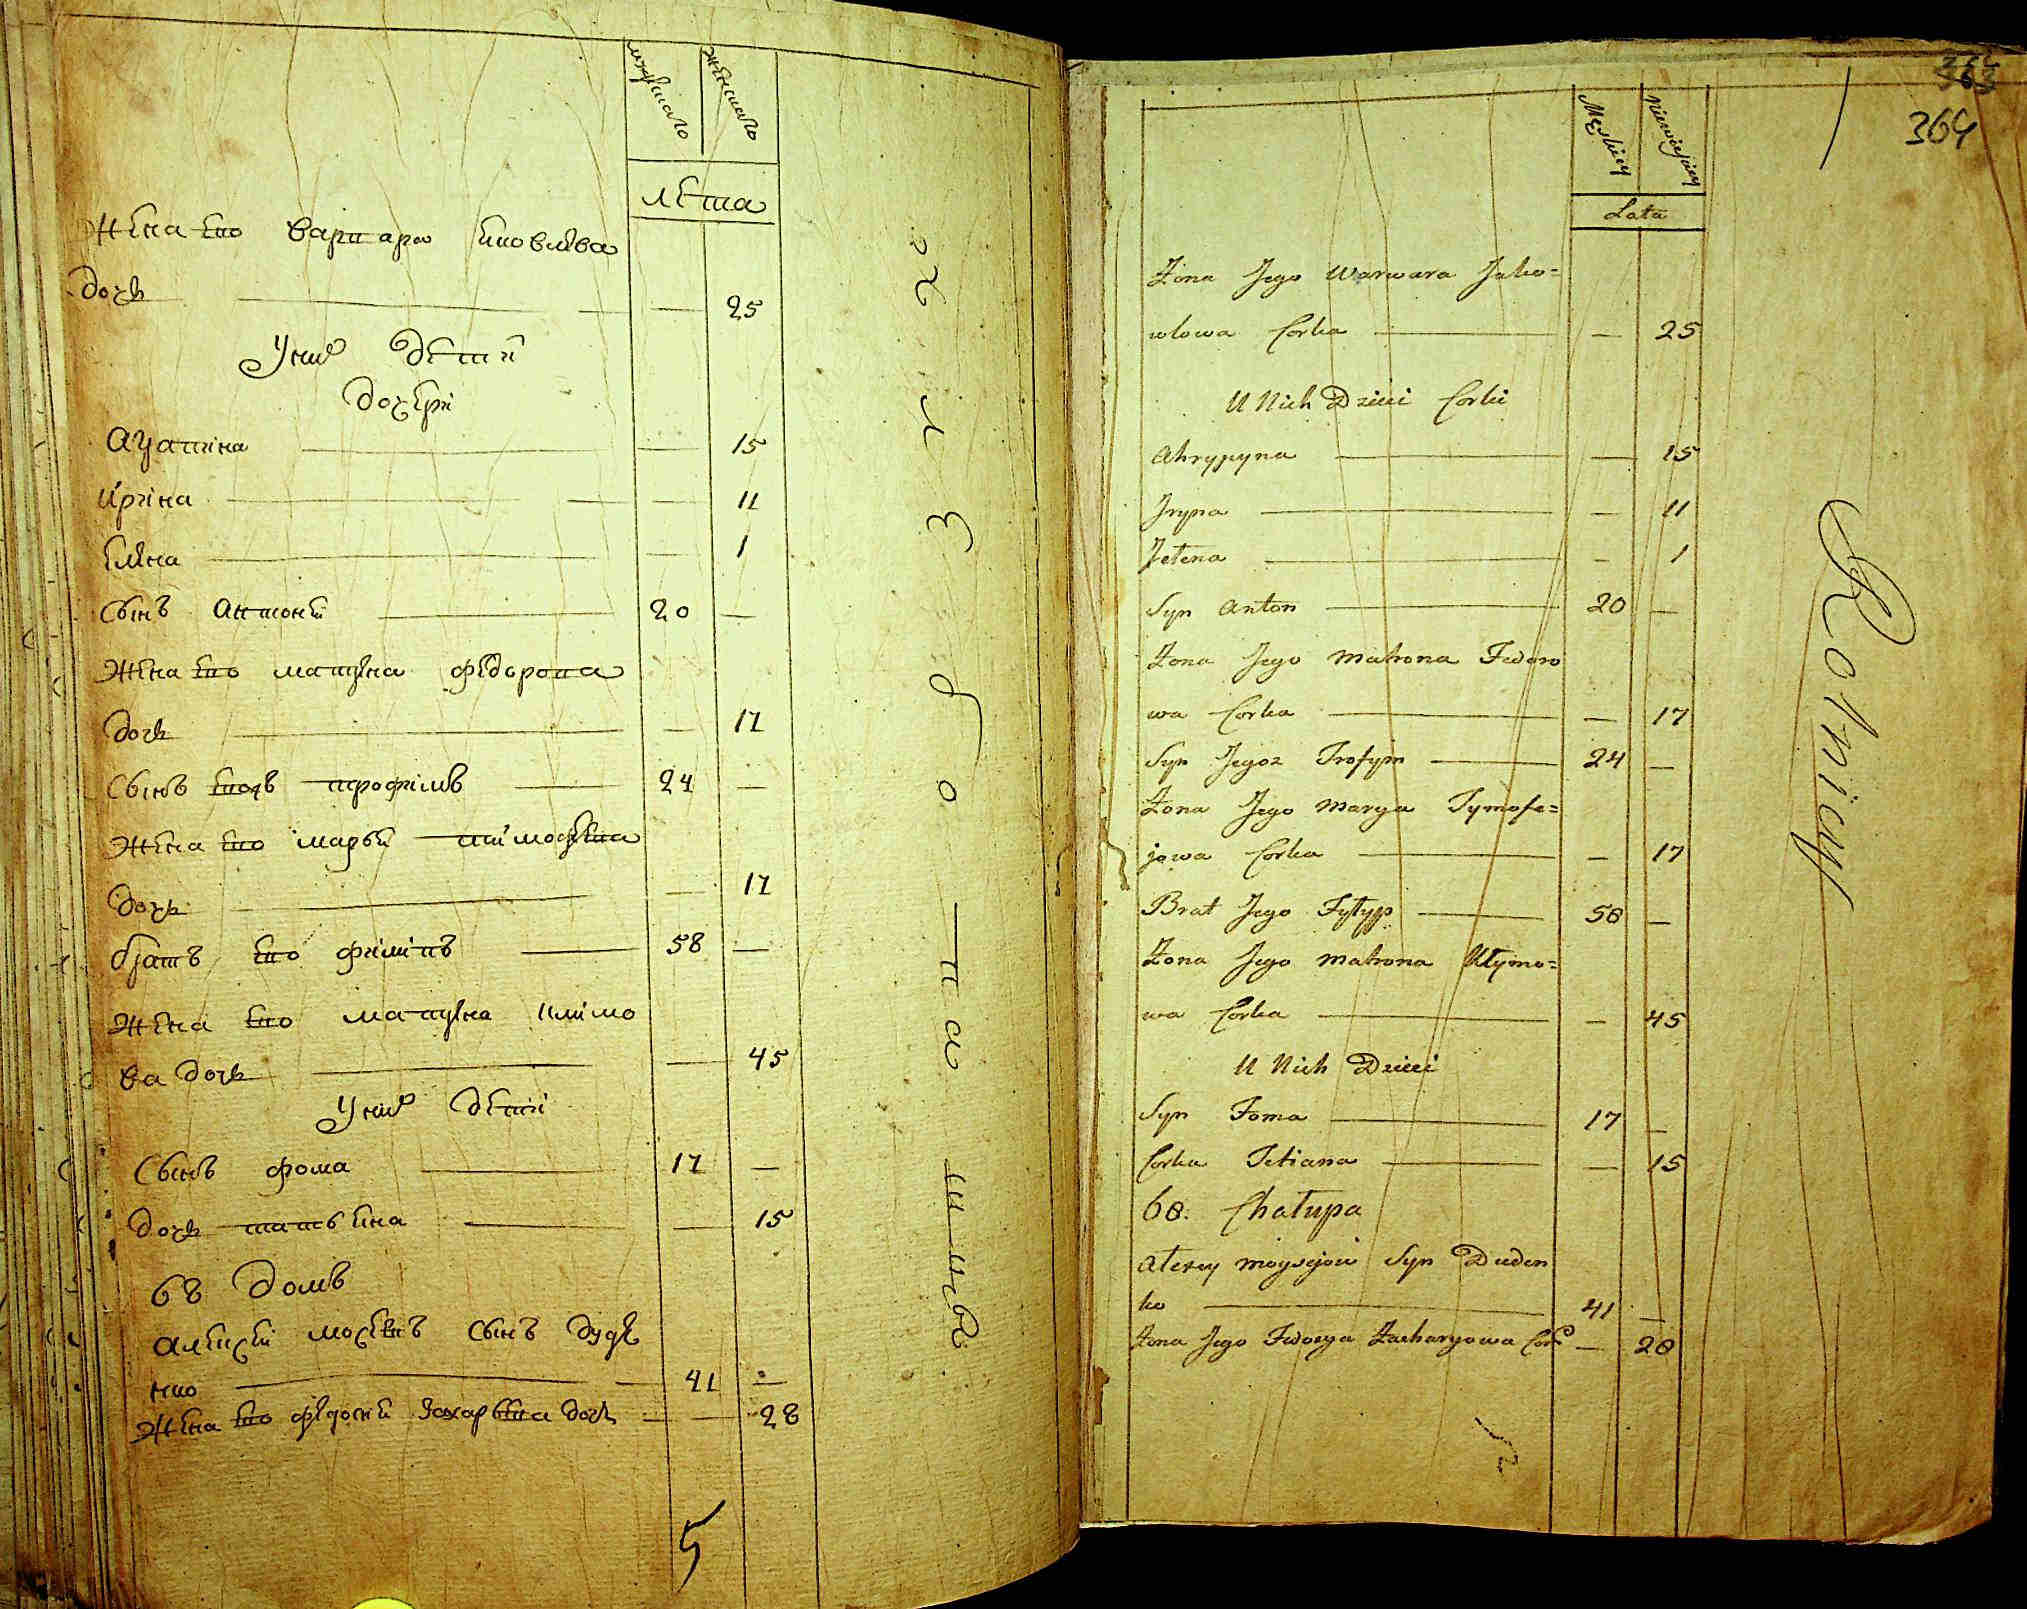 мужеска женска
лета
Жена его варвара яковлева
дочь — 25
У них детей
дочери
Агапіна — 15
Ирина — 11
Елена — 1
Сынъ Антоней 20 —
Жена его матрена федорова
дочь — 17
Сынъ егожъ трофімъ 24 —
Жена его марья тимофеева
дочь — 17
братъ его филипъ 58 —
Жена его матрена климо
ва дочь — 45
У них детей
Сынъ фома 17 —
дочь татьяна — 15
68 домъ
Алексей мосеевъ сынъ дуде
нко 41 —
Жена его федосья захарьева дочь — 28
5
хлѣборо
пашцы
363
364
Męskiey Niewieściey
Lata
Zona Jego Warwara Jako=
wlowa Corka — 25
U Nich Dzieci Corki
Ahrypyna — 15
Jryna — 11
Jełena — 1
Syn Anton 20 —
Zona Jego Matrona Fedoro
wa Corka — 17
Syn Jegoz Trofym 24 —
Zona Jego Marya Tymofe=
jowa Corka — 17
Brat Jego Fyłyp 58 —
Zona Jego Matrona Kłymo=
wa Corka — 45
U Nich Dzieci
Syn Foma 17 —
Corka Tetiana — 15
68. Chałupa
Alexey Moysejow Syn Duden
ko 41 —
Zona Jego Fedosya Zacharyowa Cor — 28
Rolnicy